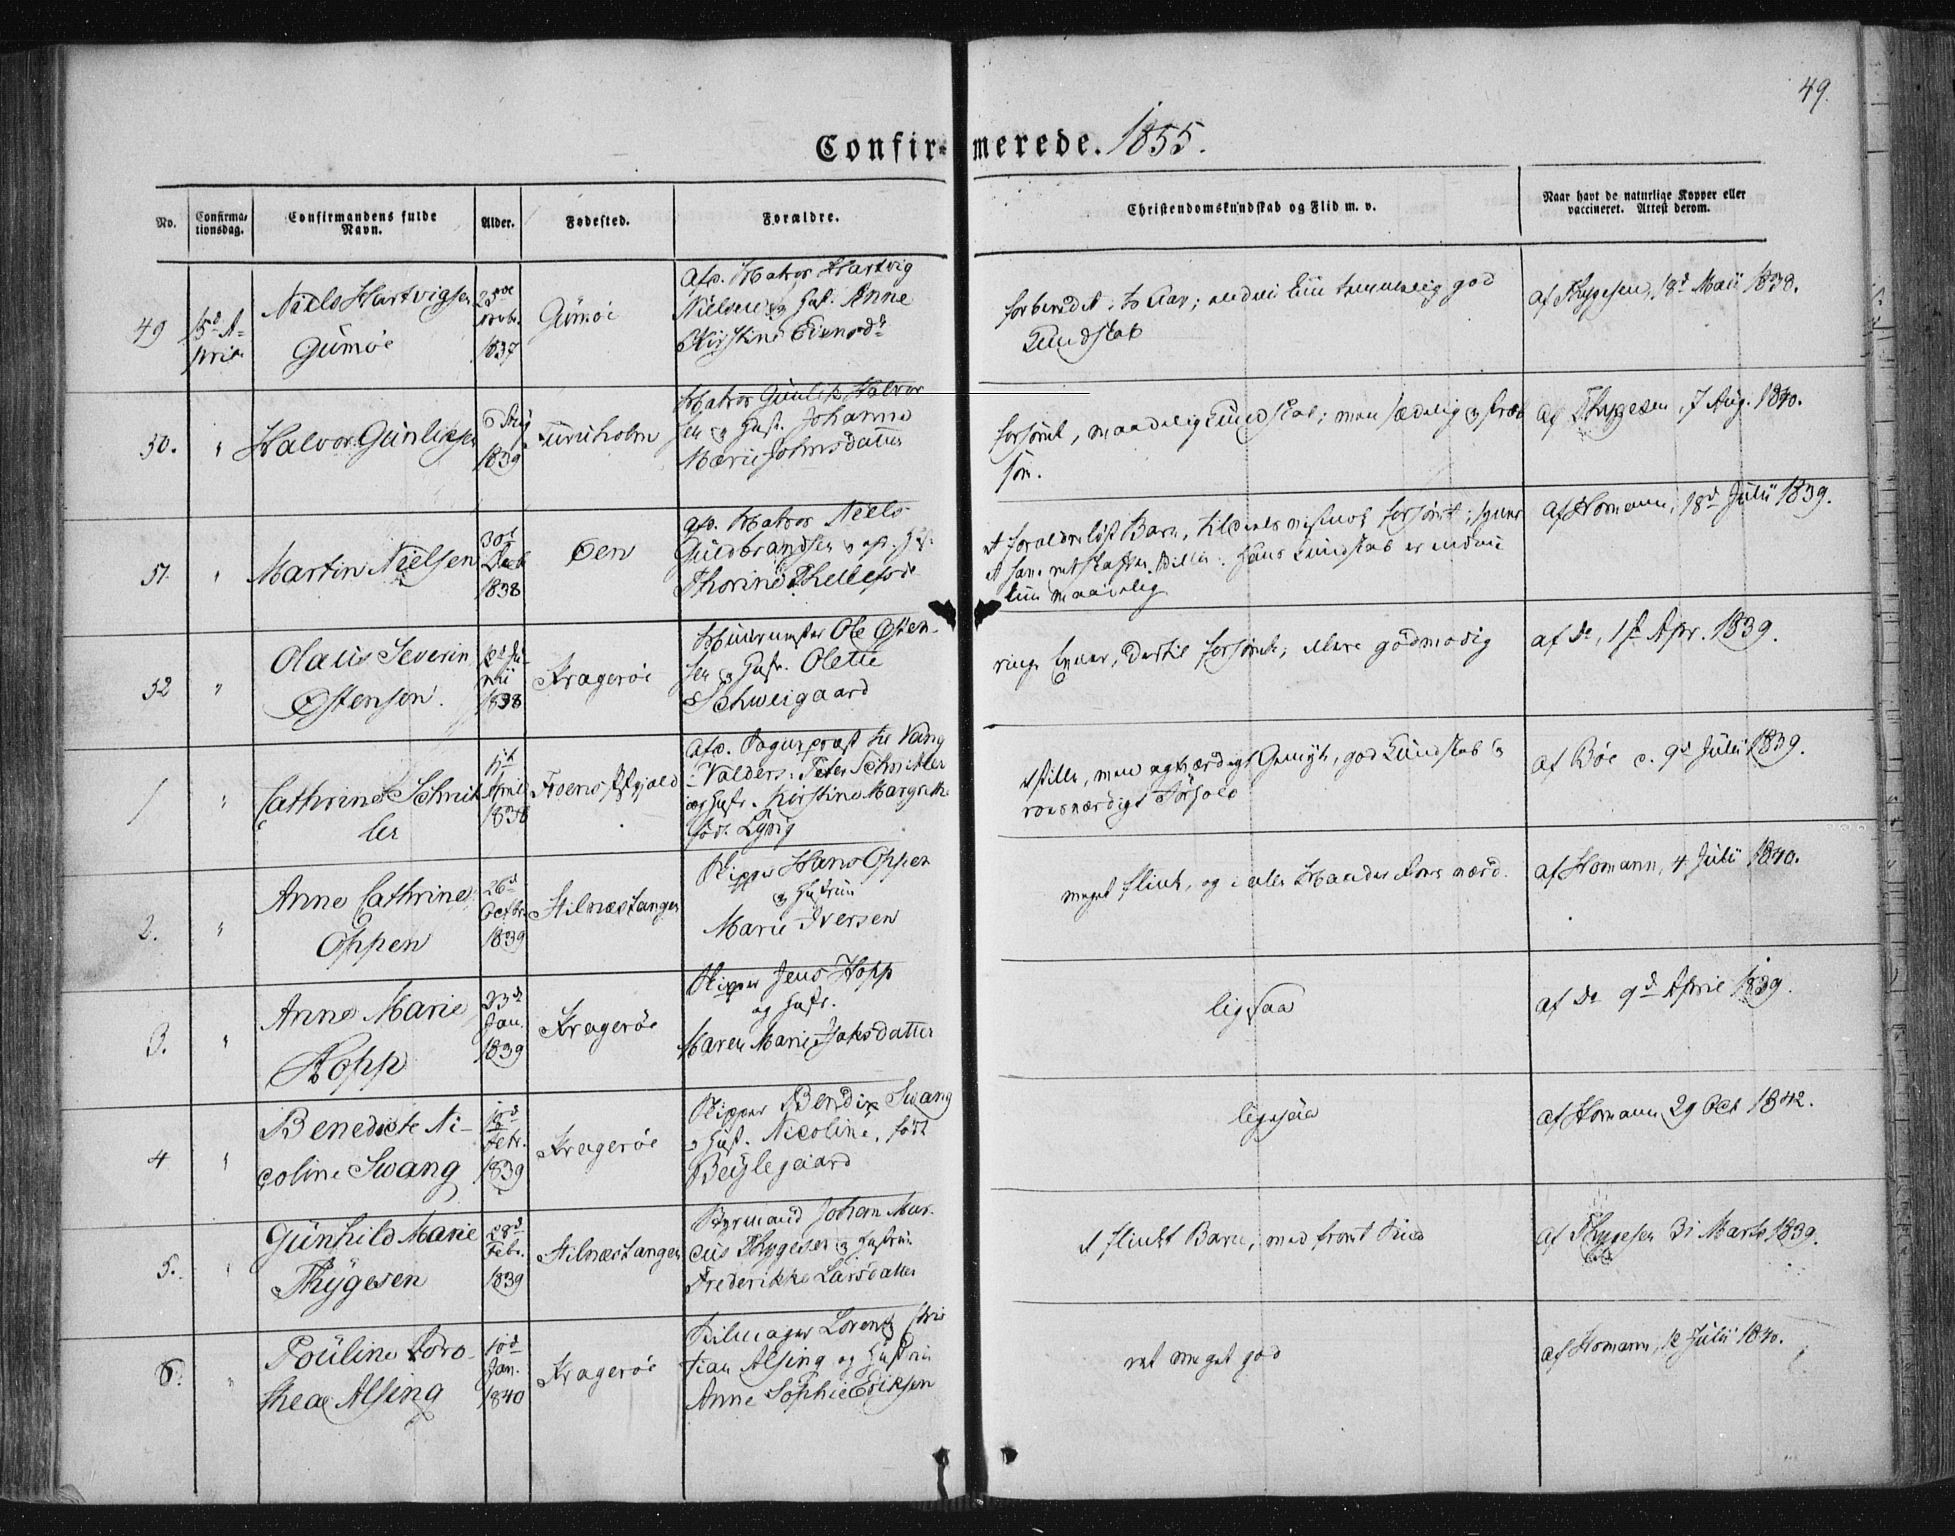 49.
Confirmerede. 1855.
No.
Confirma-
tionsdag.
Confirmandens fulde
Navn.
Alder.
Fødested.
Forældre.
Christendomskundskab og Flid m. v.
Naar havt de naturlige Kopper eller
vaccineret. Attest derom.
49
15d A-
pril
Niels Hartvigsen
Gumøe
1837
Gumøe
Afd. Matros Hartvig
Nielsen og Hust. Anne
Kirstine
god
Kundskab
af Thygesen, 18d Maii 1838.
50.
"
Halvor Gunleksen
6 Aug
1839
Furuholm
Matros Gunlek Halvor
sen og Hust. Johanne
Marie Johnsdatter
forsømt, maadelig Kundskab; men sædelig og
som.
af Thygesen, 7 Aug. 1840.
51
"
Martin Nielsen
30d
Decb
1838
Øen
afd. Matros Niels
Guldbrandsen og afd. H.
Thorine Thellefsd.
et forældreløst Barn, forsømt; synes
Hans Kundskab er
maadelig
af Homann, 18d Julii 1839.
52
"
Olaus Severin
Østensen.
Ju-
nii
1838
Kragerøe
Muurmester Ole Østen-
sen og Hustr. Oletie
Schweigaard
ringe Evner, dertil forsømt, ellers godmodig
af do, 1st Apr. 1839.
1
"
Cathrine Schmit
ler
April
1838
Foens Pstgjæld
afd. Sognepræst til Vang
i Valders: Peter Schmitler
og Hustr. Kirstine Margrethe
født Lysig
et stille, men agtværdigt Gemyt, god Kundskab og
roesværdigt Forhold
af Bøe d. 9d Julii 1839.
2.
"
Anne Cathrine
Oppen
26d
Octbr.
1839
Stilnæstangen
Skipper Hans Oppen
og Hustrue
Marie Iversen
meget flink, og i alle Maader Roes værd.
af Homann, 4 Julii 1840.
3.
"
Anne Marie
Hopp
23d
Jan.
1839
Kragerøe
Skipper Jens Hopp
og Hustr.
Maren Marie Jakodatter
ligesaa
af do 9d April 1839.
4
"
Benedicte Ni-
coline Swang
Febr.
1839
Kragerøe
Skipper Bendix Swang
og Hust. Nicoline, født
Beylegaard
ligesaa
af Homann 29 Oct 1842.
5.
"
Gunhild Marie
Thygesen
28d
Febr.
1839
Stilnæstangen
Styrmand Johan Mar-
cus Thygesen og Hustrue
Frederikke Larsdatter
et flinkt Barn, med fromt Sind
af Thygesen 31 Marts 1839.
6.
"
Pouline Doro-
thea Alsing
10d
Jan.
1840
Kragerøe
Seilmager Lorentz Chris
tian Alsing og Hustrue
Anne Sophie Eriksen
ret meget god
af Homann, 12 Julii 1840.